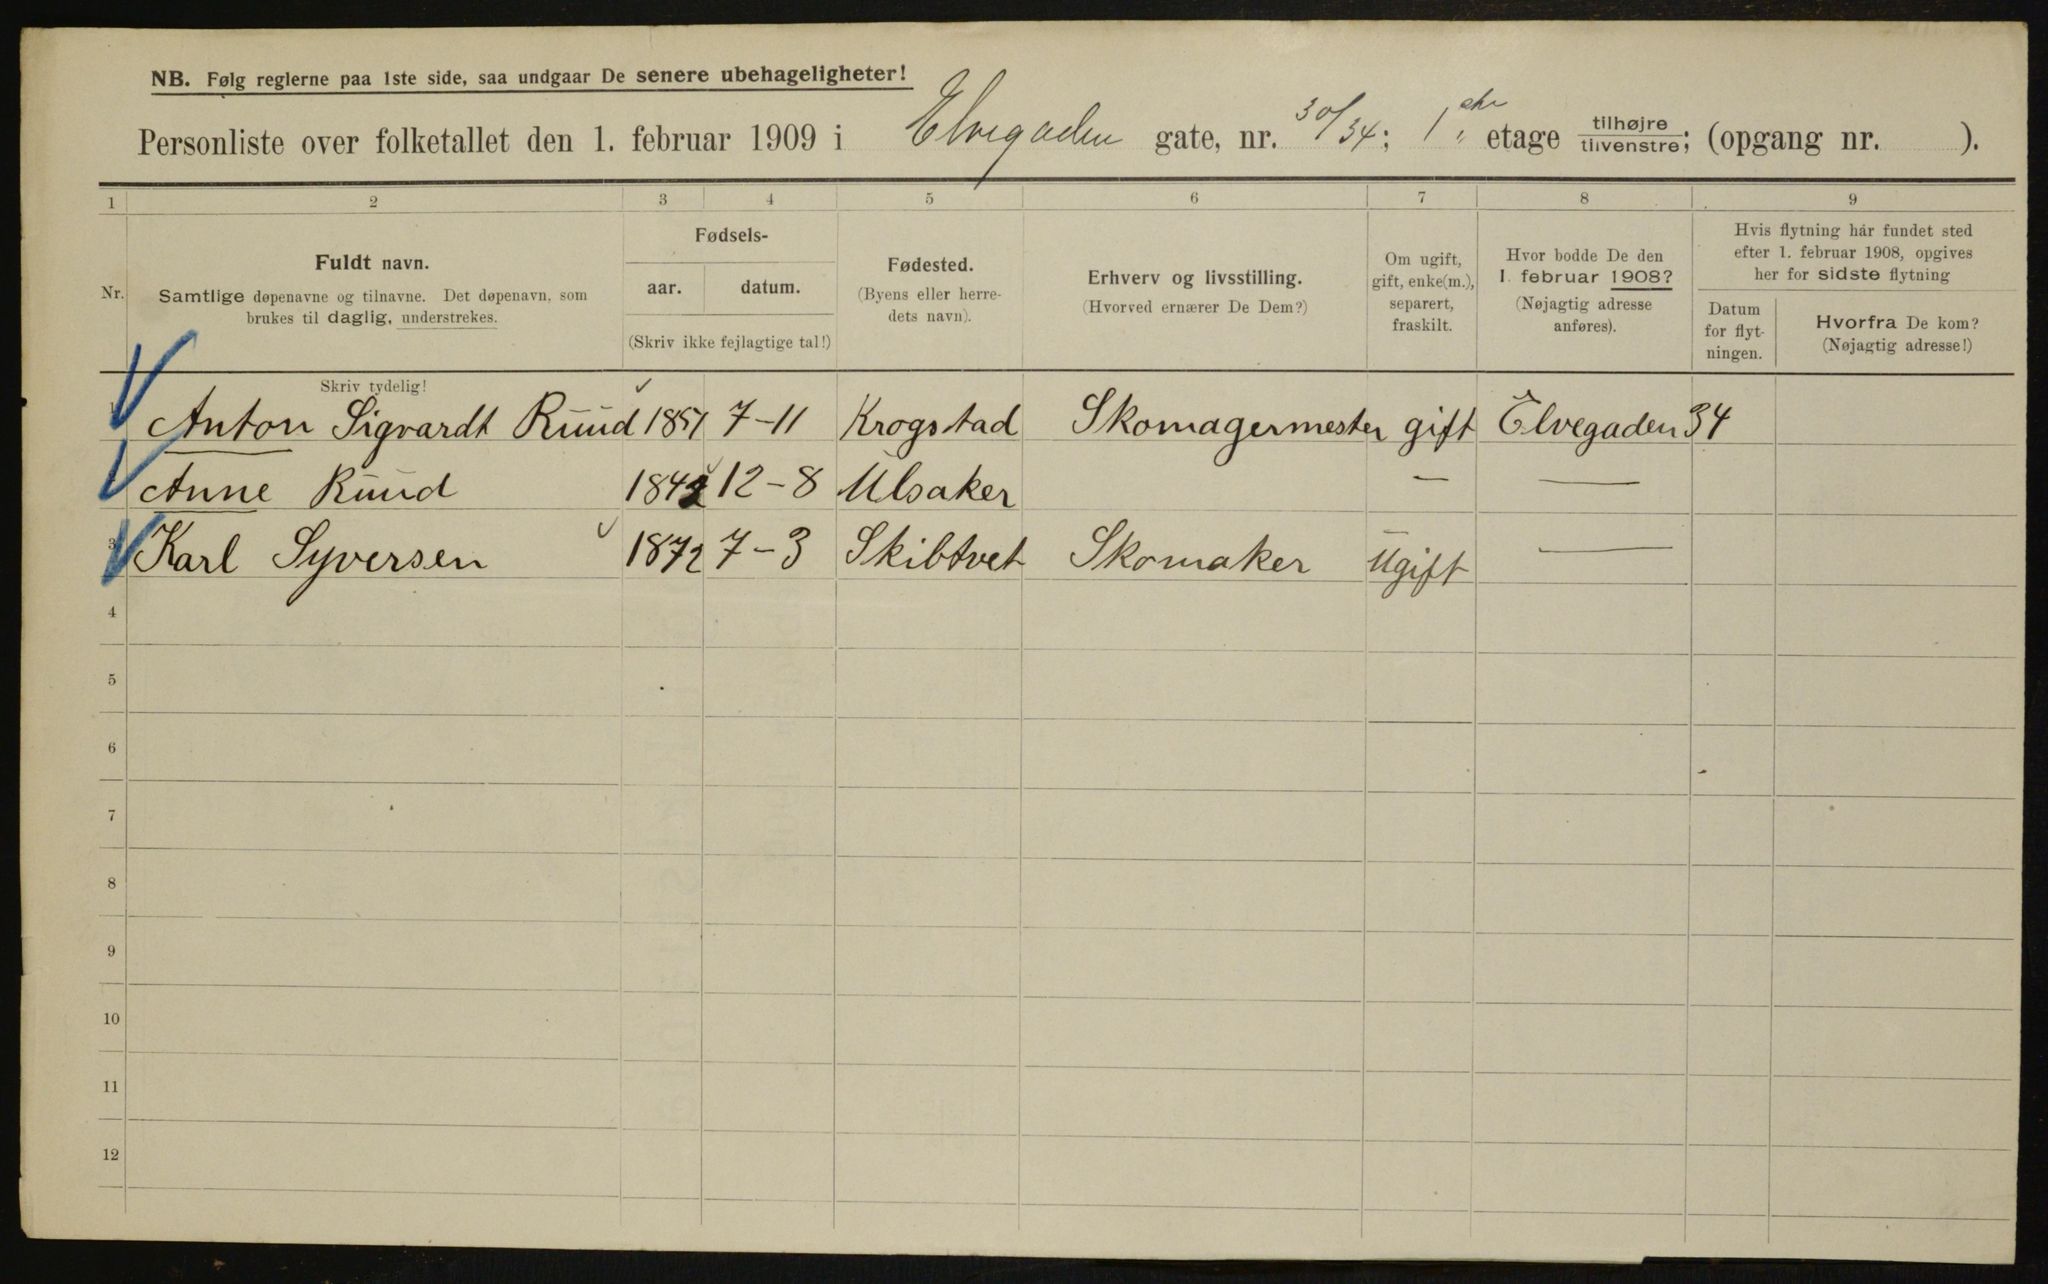 NB. Følg reglerne paa 1ste side, saa undgaar De senere ubehageligheter!
Personliste over folketallet den 1. februar 1909 i Elvegaden gate, nr. 30/34; 1ste etage tilhøjre/tilvenstre; (opgang nr. ).
1 2 3 4 5 6 7 8 9
Nr.
Fuldt navn.
Samtlige døpenavne og tilnavne. Det døpenavn, som
brukes til daglig, understrekes.
Skriv tydelig!
Fødsels-
aar. datum.
(Skriv ikke fejlagtige tal!)
Fødested.
(Byens eller herre-
dets navn).
Erhverv og livsstilling.
(Hvorved ernærer De Dem?)
Om ugift,
gift, enke(m.),
separert,
fraskilt.
Hvor bodde De den
1. februar 1908?
(Nøjagtig adresse
anføres).
Hvis flytning har fundet sted
efter 1. februar 1908, opgives
her for sidste flytning
Datum
for flyt-
ningen.
Hvorfra De kom?
(Nøjagtig adresse!)
1 Anton Sigvardt Ruud 1851 7-11 Krogstad Skomagermester gift Elvegaden 34
Anne Ruud 1842 12-8 Ulsaker — —
3 Karl Syversen 1872 7-3 Skibtvet Skomaker Ugift —
4
5
6
7
8
9
10
11
12